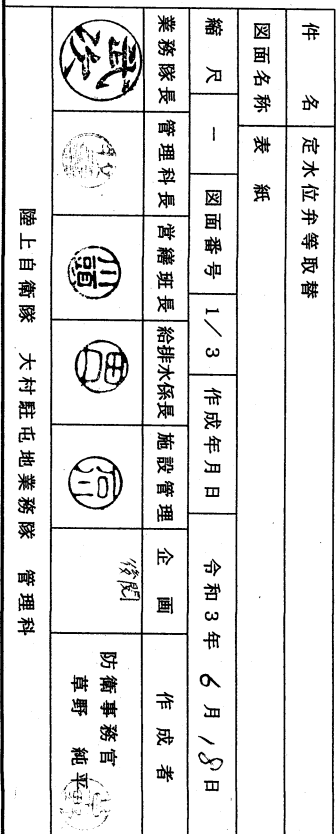 件名 定水位弁等取替
図面名称 表紙
縮尺 － 図面番号 1／3 作成年月日 令和3年6月18日
業務隊長 管理科長 営繕班長 給排水係長 施設管理 企画 作成者
川頭
後関
防衛事務官
草野 純平
陸上自衛隊 大村駐屯地業務隊 管理科